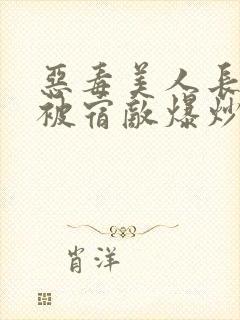 惡毒美人長
被宿敵爆炒
肖洋